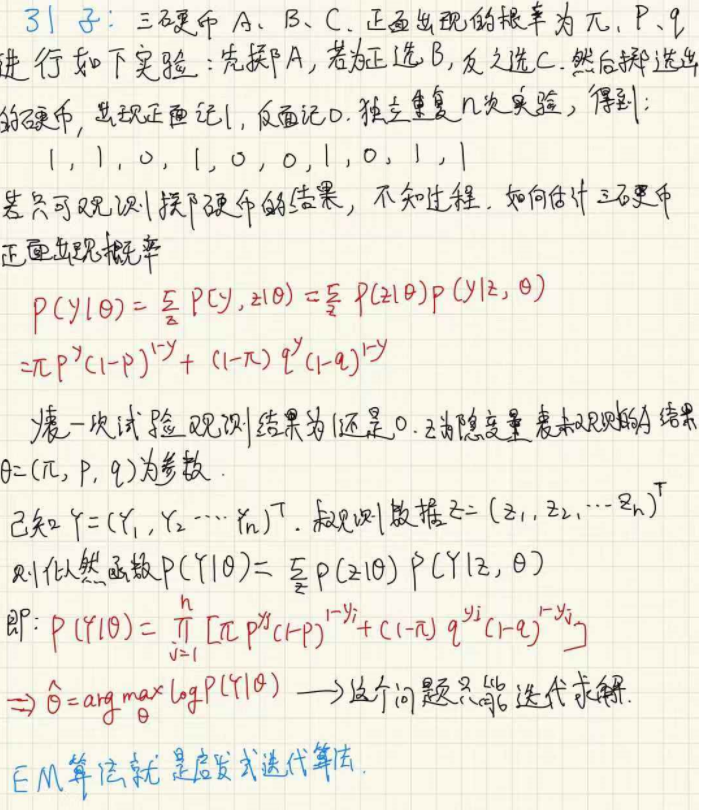 引子: 三硬币 A、B、C. 正面出现的概率为 π、P、q
进行如下实验: 先掷A, 若为正选B, 反之选C. 然后掷选出
的硬币, 出现正面记1, 反面记0. 独立重复n次实验, 得到:
1, 1, 0, 1, 0, 0, 1, 0, 1, 1
若只可观测掷硬币的结果, 不知过程. 如何估计三硬币
正面出现概率
P(y|θ) = Σ_z P(y, z|θ) = Σ_z P(z|θ) P(y|z, θ)
= π p^y (1-p)^{1-y} + (1-π) q^y (1-q)^{1-y}
y表一次试验观测结果为1还是0. z为隐变量 表未观测的A结果
θ=(π, p, q)为参数.
已知 Y = (Y₁, Y₂ ···· Yn)^T. 未观测数据 Z = (z₁, z₂, ··· zn)^T
则似然函数 P(Y|θ) = Σ_z P(z|θ) P(Y|z, θ)
即: P(Y|θ) = ∏_{j=1}^n [π p^{yj} (1-p)^{1-yj} + (1-π) q^{yj} (1-q)^{1-yj}]
⇒ θ̂ = arg max_θ log P(Y|θ) ⟶ 这个问题只能迭代求解.
EM算法就是启发式迭代算法.